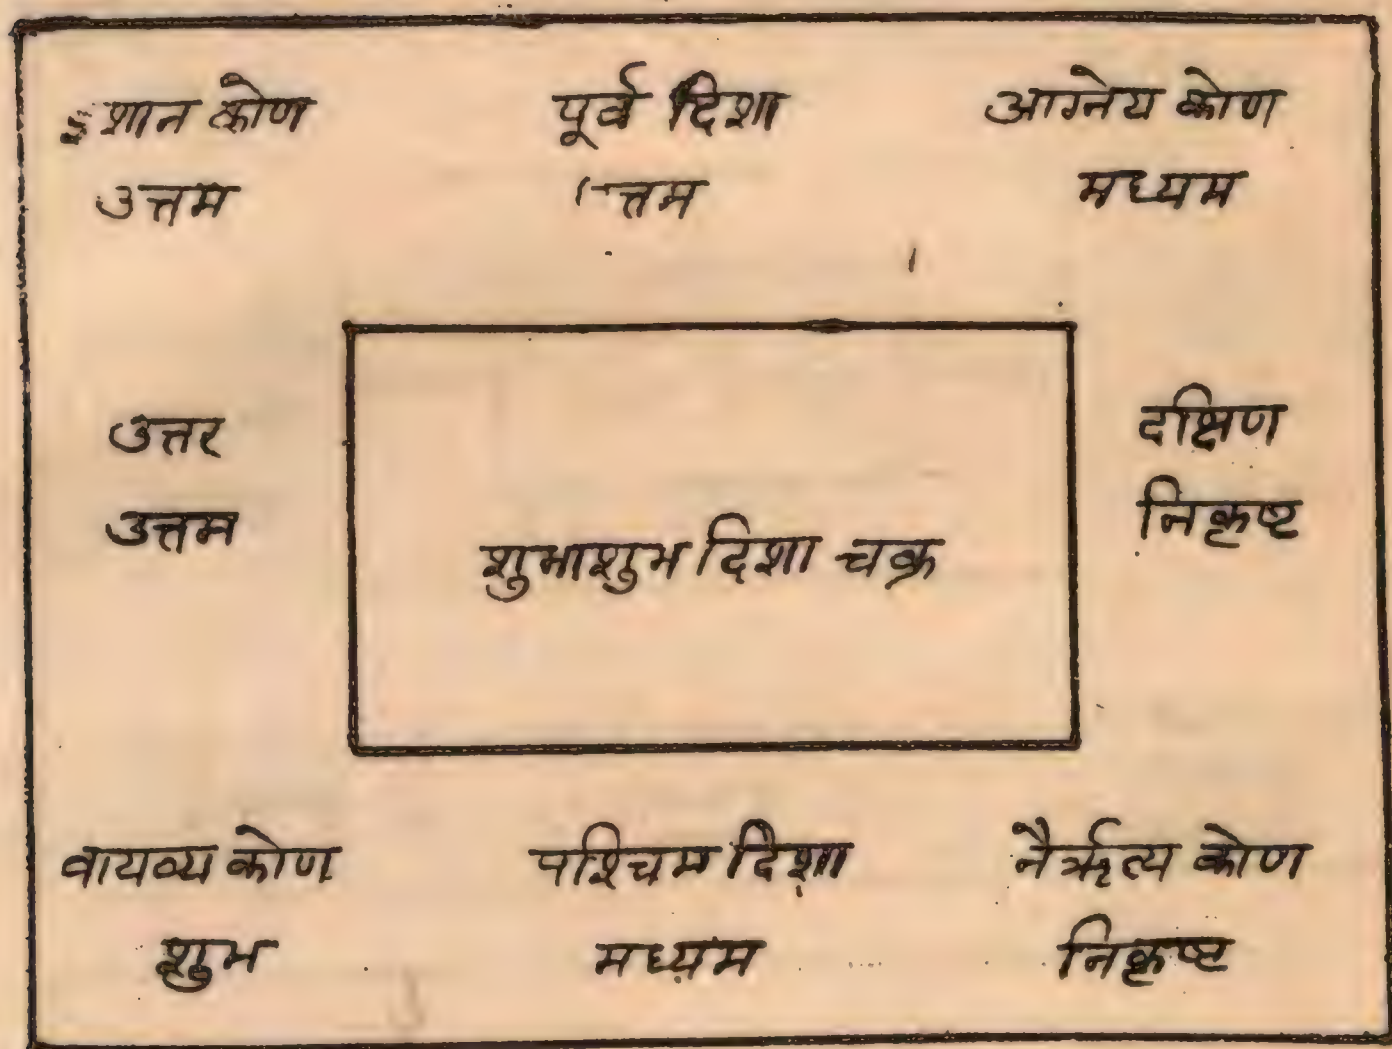 ईशान कोण
उत्तम
पूर्व दिशा
उत्तम
आग्नेय कोण
मध्यम
उत्तर
उत्तम
शुभाशुभ दिशा चक्र
दक्षिण
निकृष्ट
वायव्य कोण
शुभ
पश्चिम दिशा
मध्यम
नैर्ऋत्य कोण
निकृष्ट